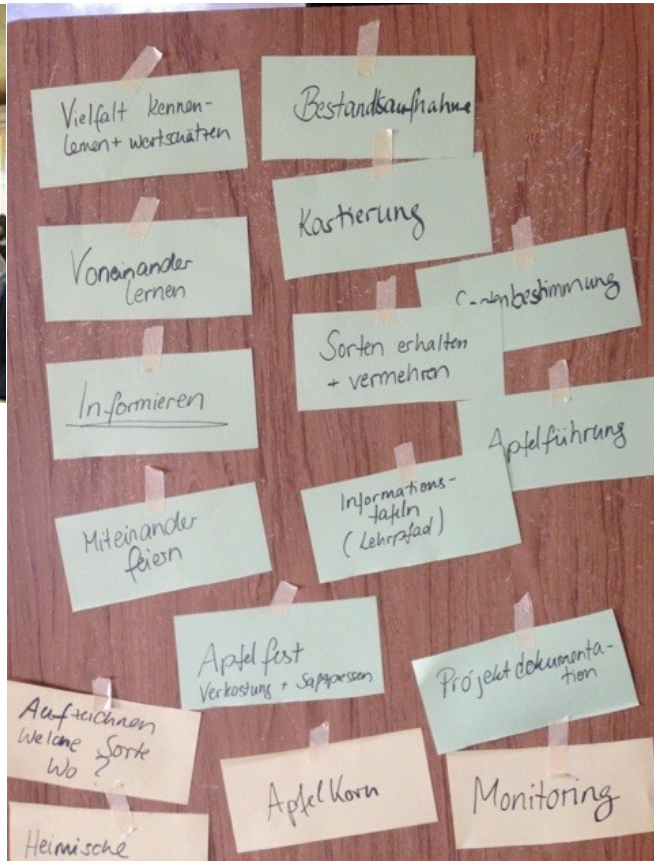 Vielfalt kennen-
lernen + wertschätzen
Bestandsaufnahme
Kartierung
Voneinander
lernen
Sortenbestimmung
Sorten erhalten
+ vermehren
Informieren
Apfelführung
Informations-
tafeln
(Lehrpfad)
Miteinander
feiern
Apfelfest
Verkostung + Saftpressen
Projektdokumenta-
tion
Aufzeichnen
Welche Sorte
Wo?
Apfelkorn
Monitoring
Heimische